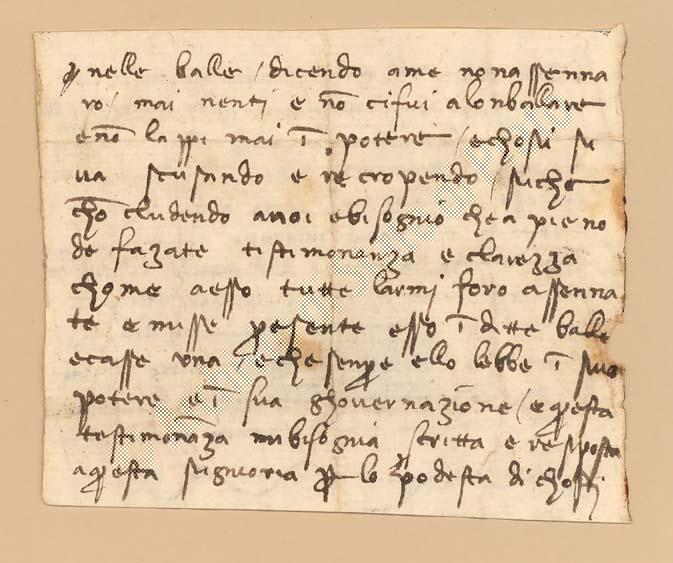 nelle balle / dicendo ame nonassenna
ro / mai nenti e nō cifui alonballare
enō lappi mai ī potere / echosi si
va scusando e recropendo / siche
chō cludendo anoi ebisognio che a pieno
de fazate testimonanza e clarezza
chome aesso tutte larmi foro assenna
te e misse presente esso ī ditte balle
ecasse una echesenpre ello lebbe ī suo
potere e ī sua ghovernazione / e questa
testimonāza mibisognia scritta e resposta
aquesta signioria per lo podesta di chosti